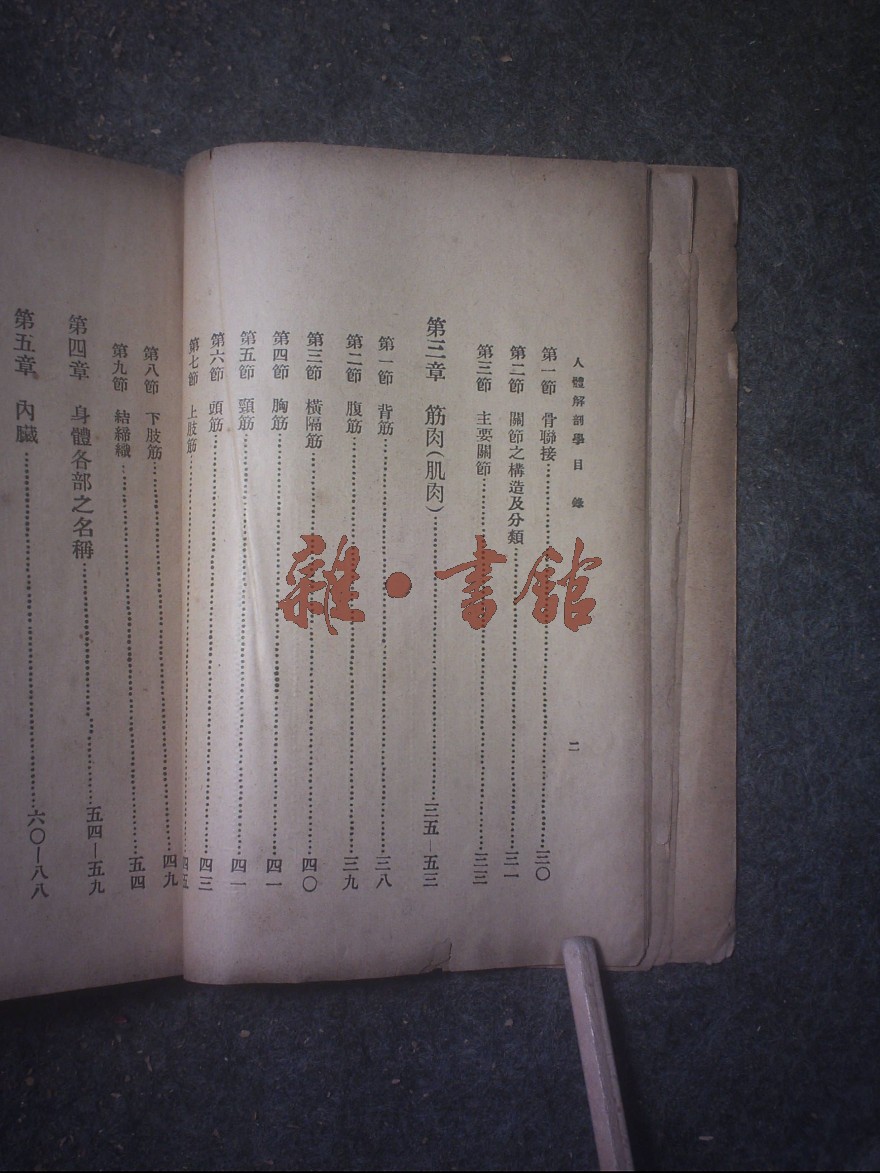 人體解剖學 目錄
二
第一節 骨聯接……三〇
第二節 關節之構造及分類……三一
第三節 主要關節……三三
第三章 筋肉(肌肉)……三五—五三
第一節 背筋……三八
第二節 腹筋……三九
第三節 橫隔筋……四〇
第四節 胸筋……四一
第五節 頸筋……四一
第六節 頭筋……四三
第七節 上肢筋……四五
第八節 下肢筋……四九
第九節 結締織……五四
第四章 身體各部之名稱……五四—五九
第五章 內臟……六〇—八八
雜·書館